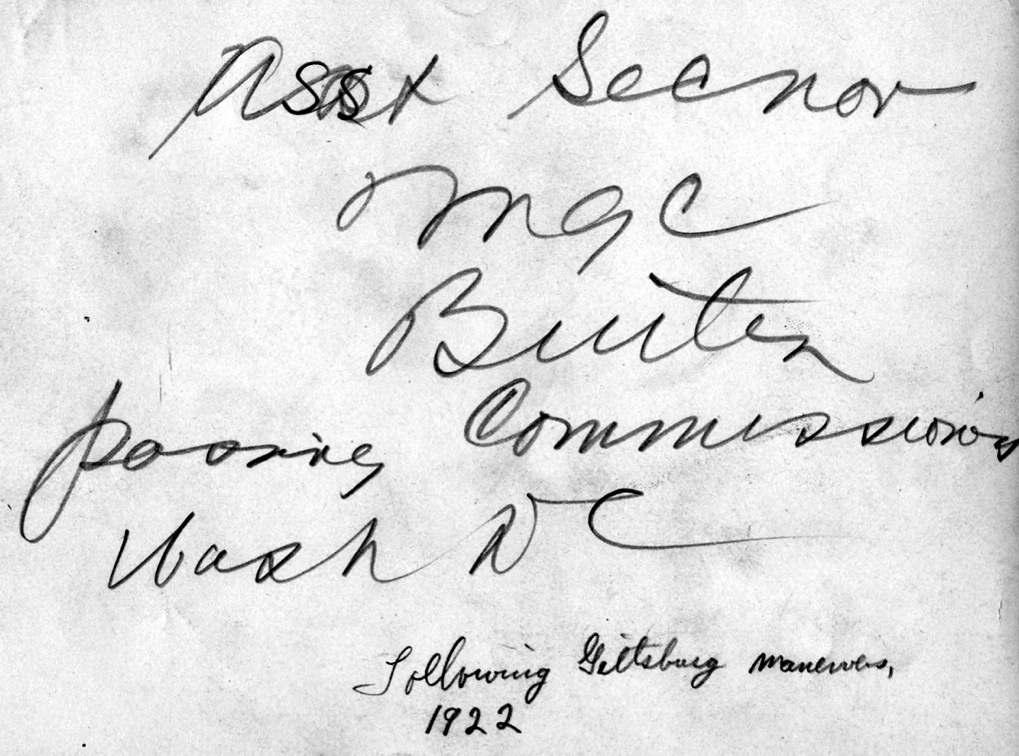 Asst Secnov
MGC
Butler
posing Commissions
Wash DC
Following Gettsburg maneuvers,
1922